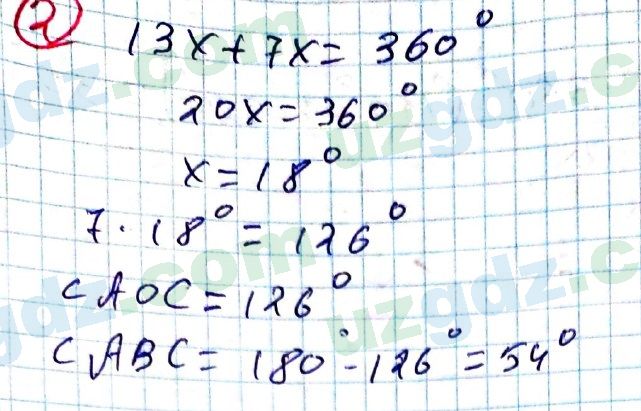 2
13x+7x=360°
20x=360°
x=18°
7·18°=126°
∠AOC=126°
∠ABC=180°-126°=54°
uzgdz.com
uzgdz.c
gdz.com
uzgdz.c